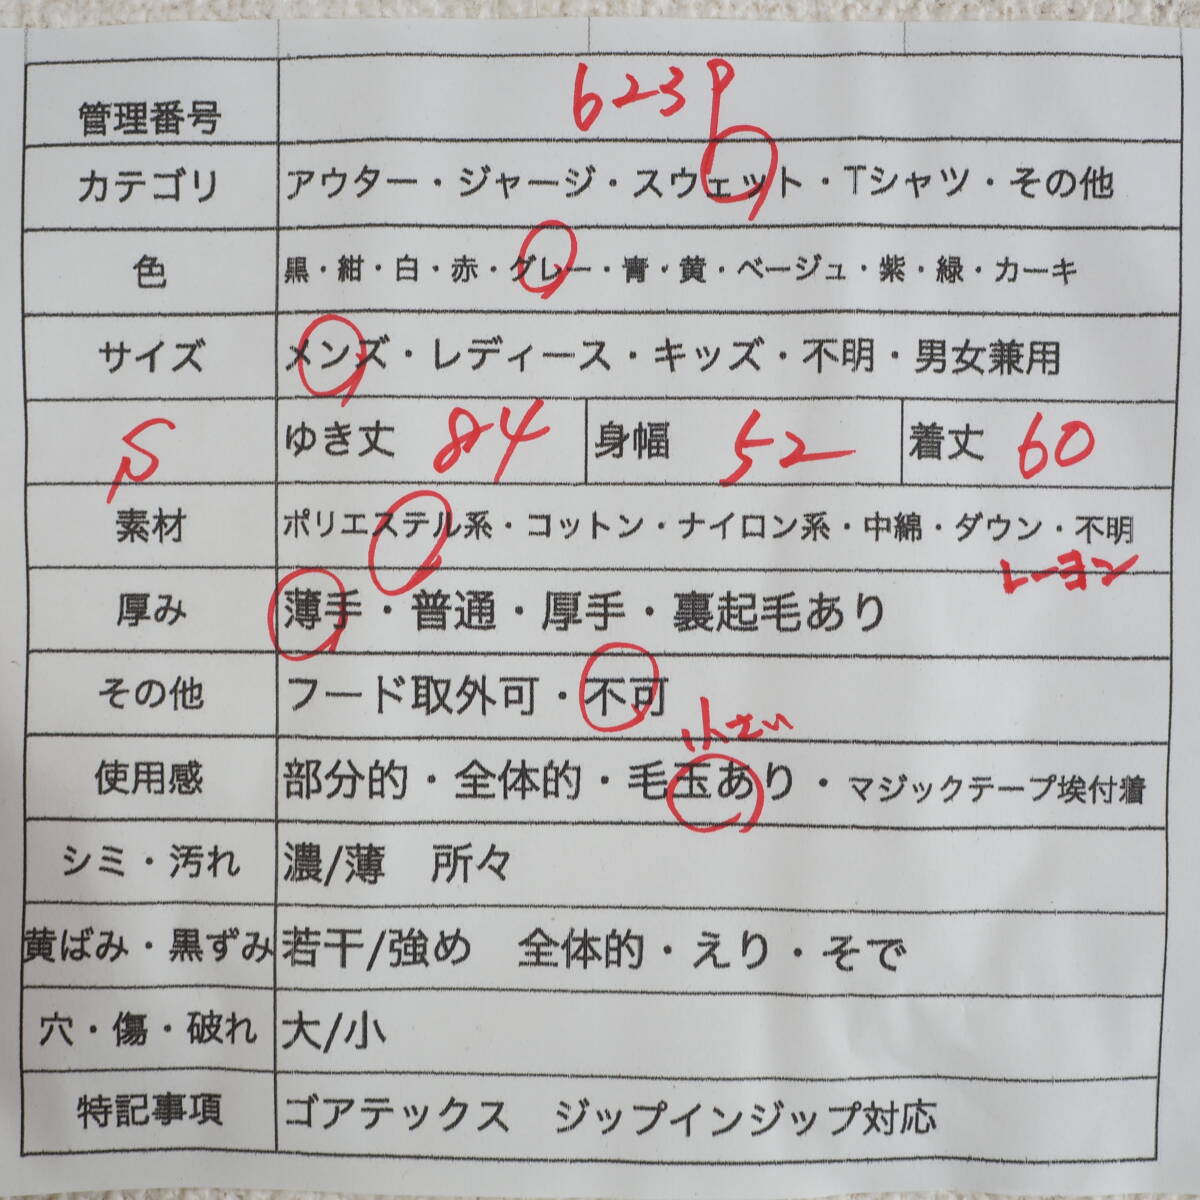 管理番号 623P
カテゴリ アウター・ジャージ・スウェット・Tシャツ・その他
色 黒・紺・白・赤・グレー・青・黄・ベージュ・紫・緑・カーキ
サイズ メンズ・レディース・キッズ・不明・男女兼用
S ゆき丈 84 身幅 52 着丈 60
素材 ポリエステル系・コットン・ナイロン系・中綿・ダウン・不明
レーヨン
厚み 薄手・普通・厚手・裏起毛あり
その他 フード取外可・不可
小さい
使用感 部分的・全体的・毛玉あり・マジックテープ埃付着
シミ・汚れ 濃/薄 所々
黄ばみ・黒ずみ 若干/強め 全体的・えり・そで
穴・傷・破れ 大/小
特記事項 ゴアテックス ジップインジップ対応